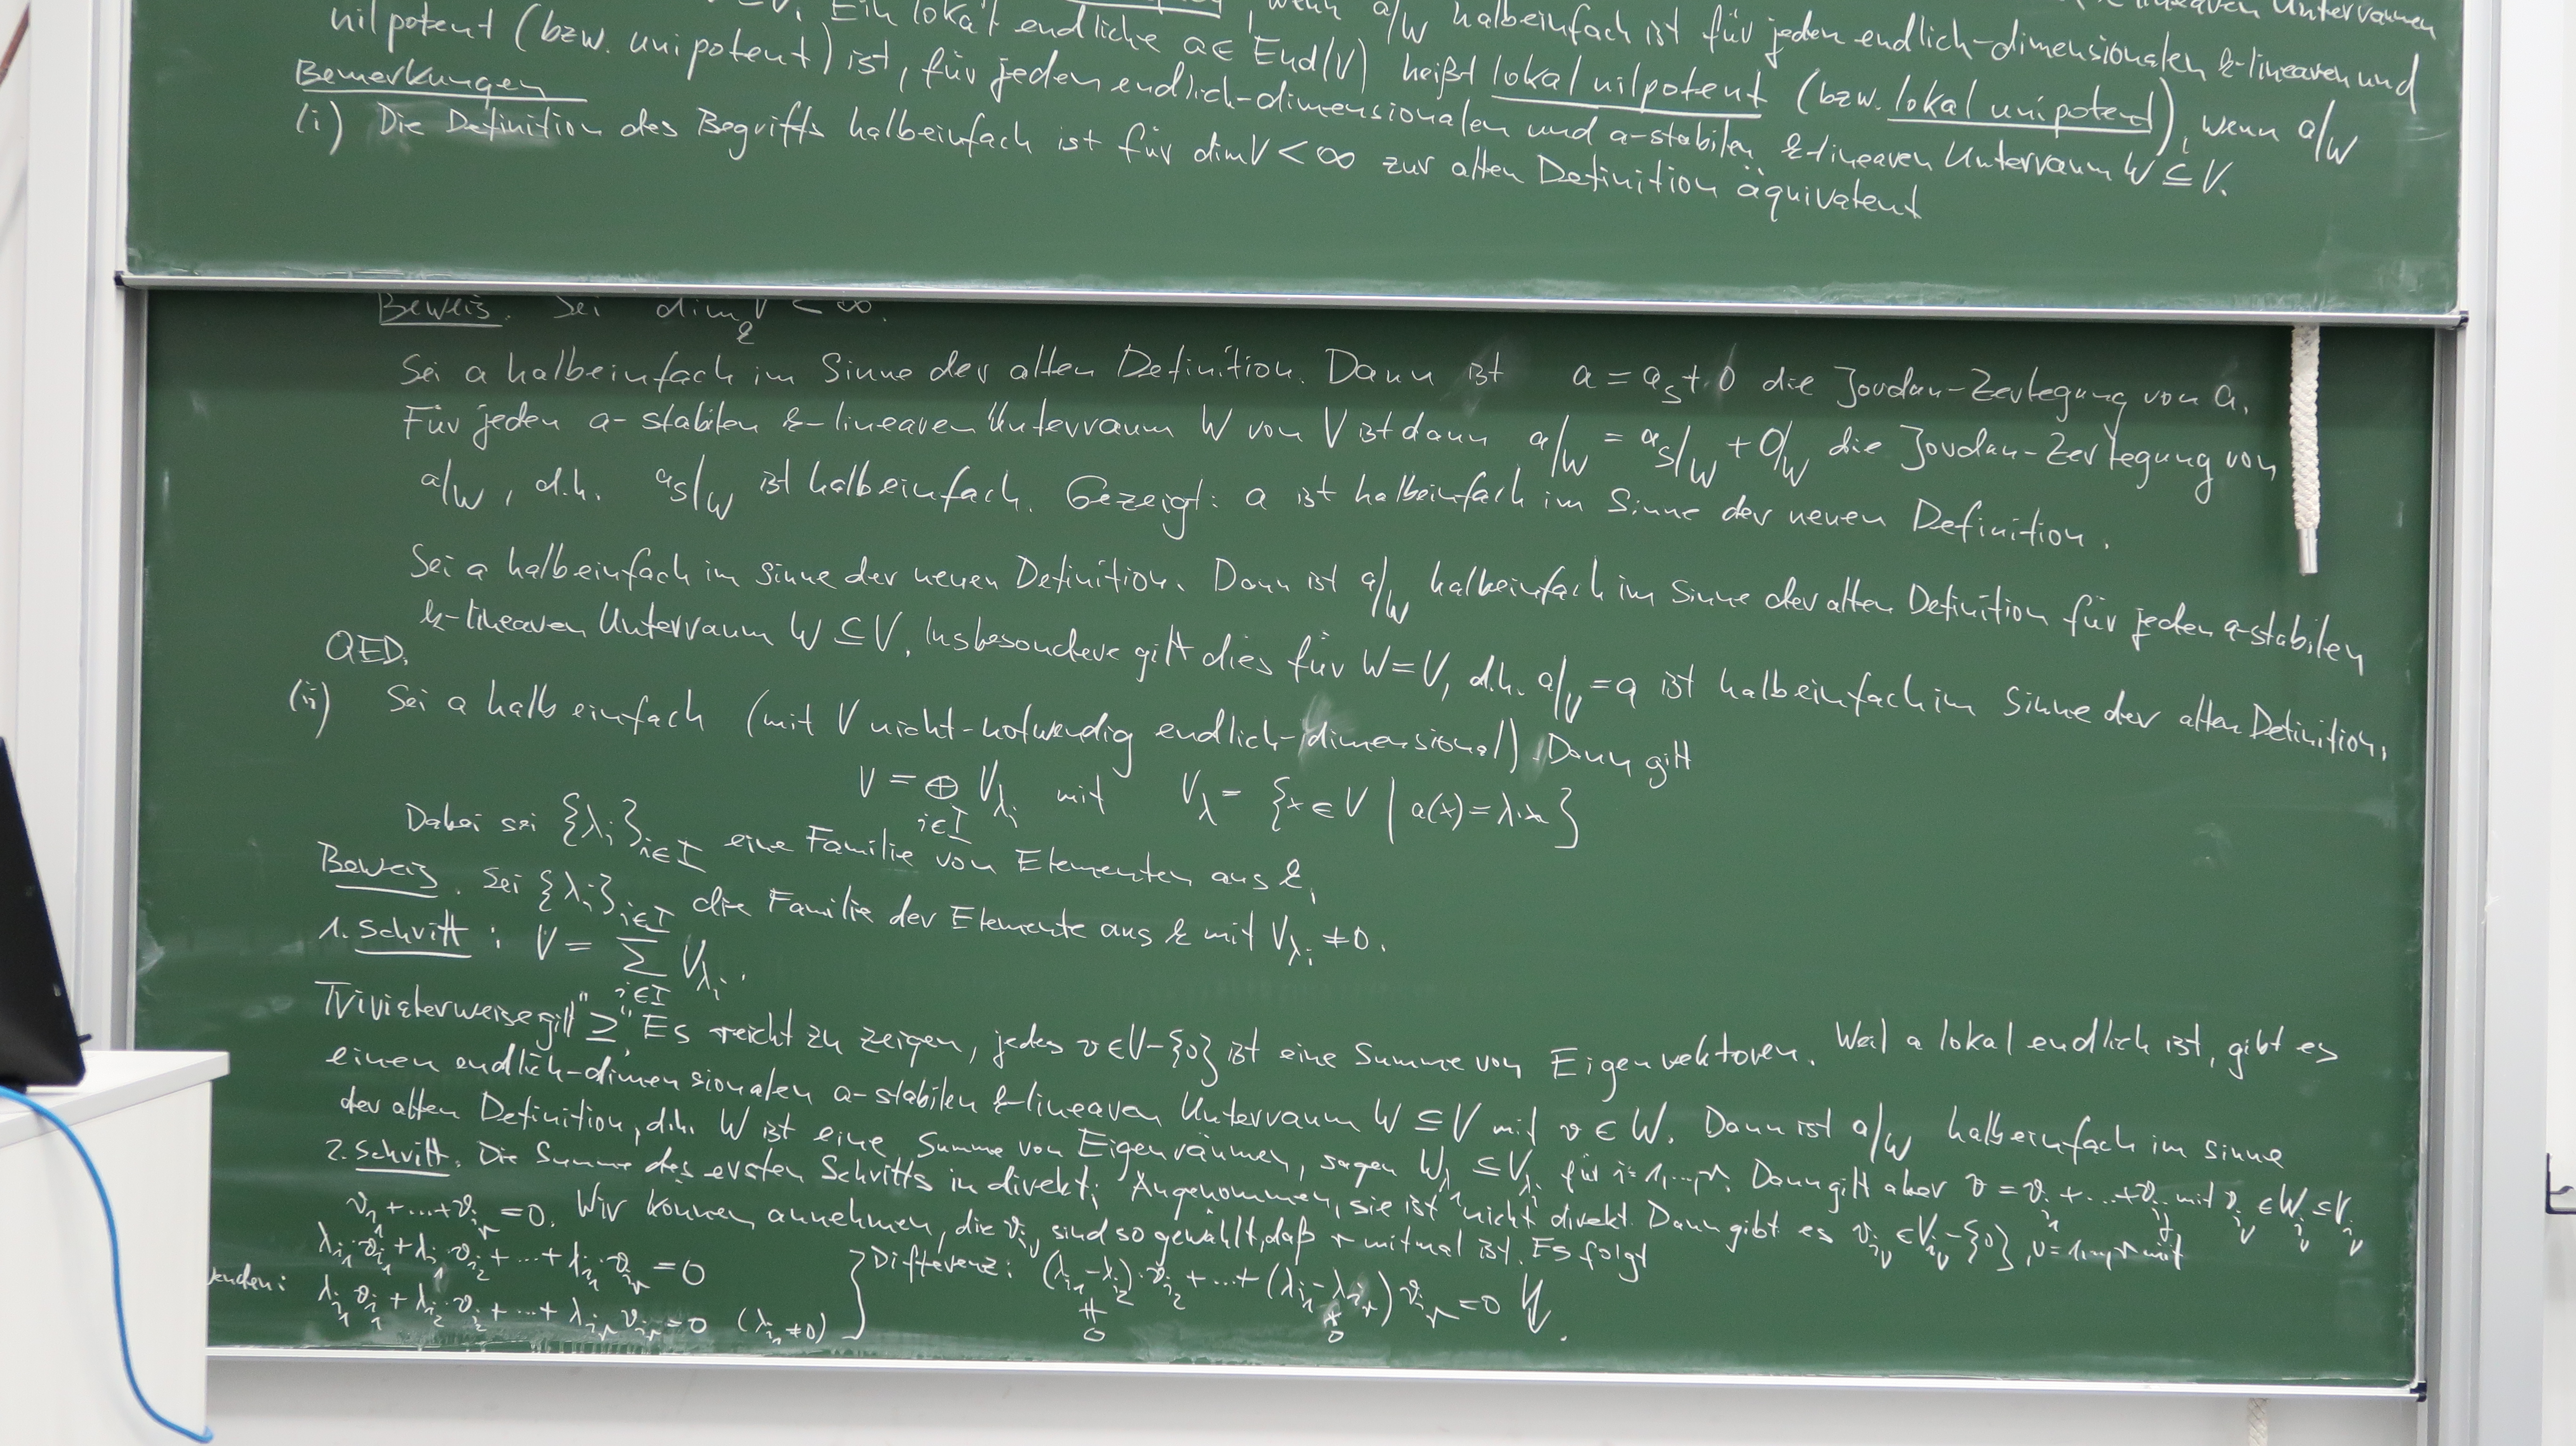 Ein lokal endliche a ∈ End(V) heißt lokal nilpotent (bzw. lokal unipotent), wenn a|W
halbeinfach ist für jeden endlich-dimensionalen k-linearen und
nilpotent (bzw. unipotent) ist, für jeden endlich-dimensionalen und a-stabilen k-linearen Unterraum W ⊆ V.
Bemerkungen
(i) Die Definition des Begriffs halbeinfach ist für dim V < ∞ zur alten Definition äquivalent
Beweis. Sei dim_k V < ∞.
Sei a halbeinfach im Sinne der alten Definition. Dann ist a = a_s + 0 die Jordan-Zerlegung von a.
Für jeden a-stabilen k-linearen Unterraum W von V ist dann a|_W = a_s|_W + 0|_W die Jordan-Zerlegung von
a|_W, d.h. a_s|_W ist halbeinfach. Gezeigt: a ist halbeinfach im Sinne der neuen Definition.
Sei a halbeinfach im Sinne der neuen Definition. Dann ist a|_W halbeinfach im Sinne der alten Definition für jeden a-stabilen
k-linearen Unterraum W ⊆ V. Insbesondere gilt dies für W = V, d.h. a|_V = a ist halbeinfach im Sinne der alten Definition.
QED.
(ii) Sei a halbeinfach (mit V nicht-notwendig endlich-dimensional). Dann gilt
V = ⊕_{i∈I} V_{λ_i} mit V_λ = {x ∈ V | a(x) = λ·x}
Dabei sei {λ_i}_{i∈I} eine Familie von Elementen aus k.
Beweis. Sei {λ_i}_{i∈I} die Familie der Elemente aus k mit V_{λ_i} ≠ 0.
1. Schritt: V = Σ_{i∈I} V_{λ_i}.
Trivialerweise gilt "⊇". Es reicht zu zeigen, jedes v ∈ V-{0} ist eine Summe von Eigenvektoren. Weil a lokal endlich ist, gibt es
einen endlich-dimensionalen a-stabilen k-linearen Unterraum W ⊆ V mit v ∈ W. Dann ist a|_W halbeinfach im Sinne
der alten Definition, d.h. W ist eine Summe von Eigenräumen, sagen W_{λ_i} ⊆ V_{λ_i} für i=1,...,r. Dann gilt aber v = v_{i_1} + ... + v_{i_r} mit v_{i_ν} ∈ W_{i_ν} ⊆ V_{i_ν}
2. Schritt. Die Summe des ersten Schritts in direkt; Angenommen, sie ist nicht direkt. Dann gibt es v_{i_ν} ∈ V_{i_ν}-{0}, ν=1,...,r mit
v_{i_1} + ... + v_{i_r} = 0. Wir können annehmen, die v_{i_ν} sind so gewählt, daß r minimal ist. Es folgt
λ_{i_1} v_{i_1} + λ_{i_1} v_{i_2} + ... + λ_{i_1} v_{i_r} = 0
enden: λ_{i_1} v_{i_1} + λ_{i_2} v_{i_2} + ... + λ_{i_r} v_{i_r} = 0 (λ_{i_1} ≠ 0)
} Differenz: (λ_{i_1} - λ_{i_2}) · v_{i_2} + ... + (λ_{i_1} - λ_{i_r}) v_{i_r} = 0 ↯.
≠ 0 ≠ 0